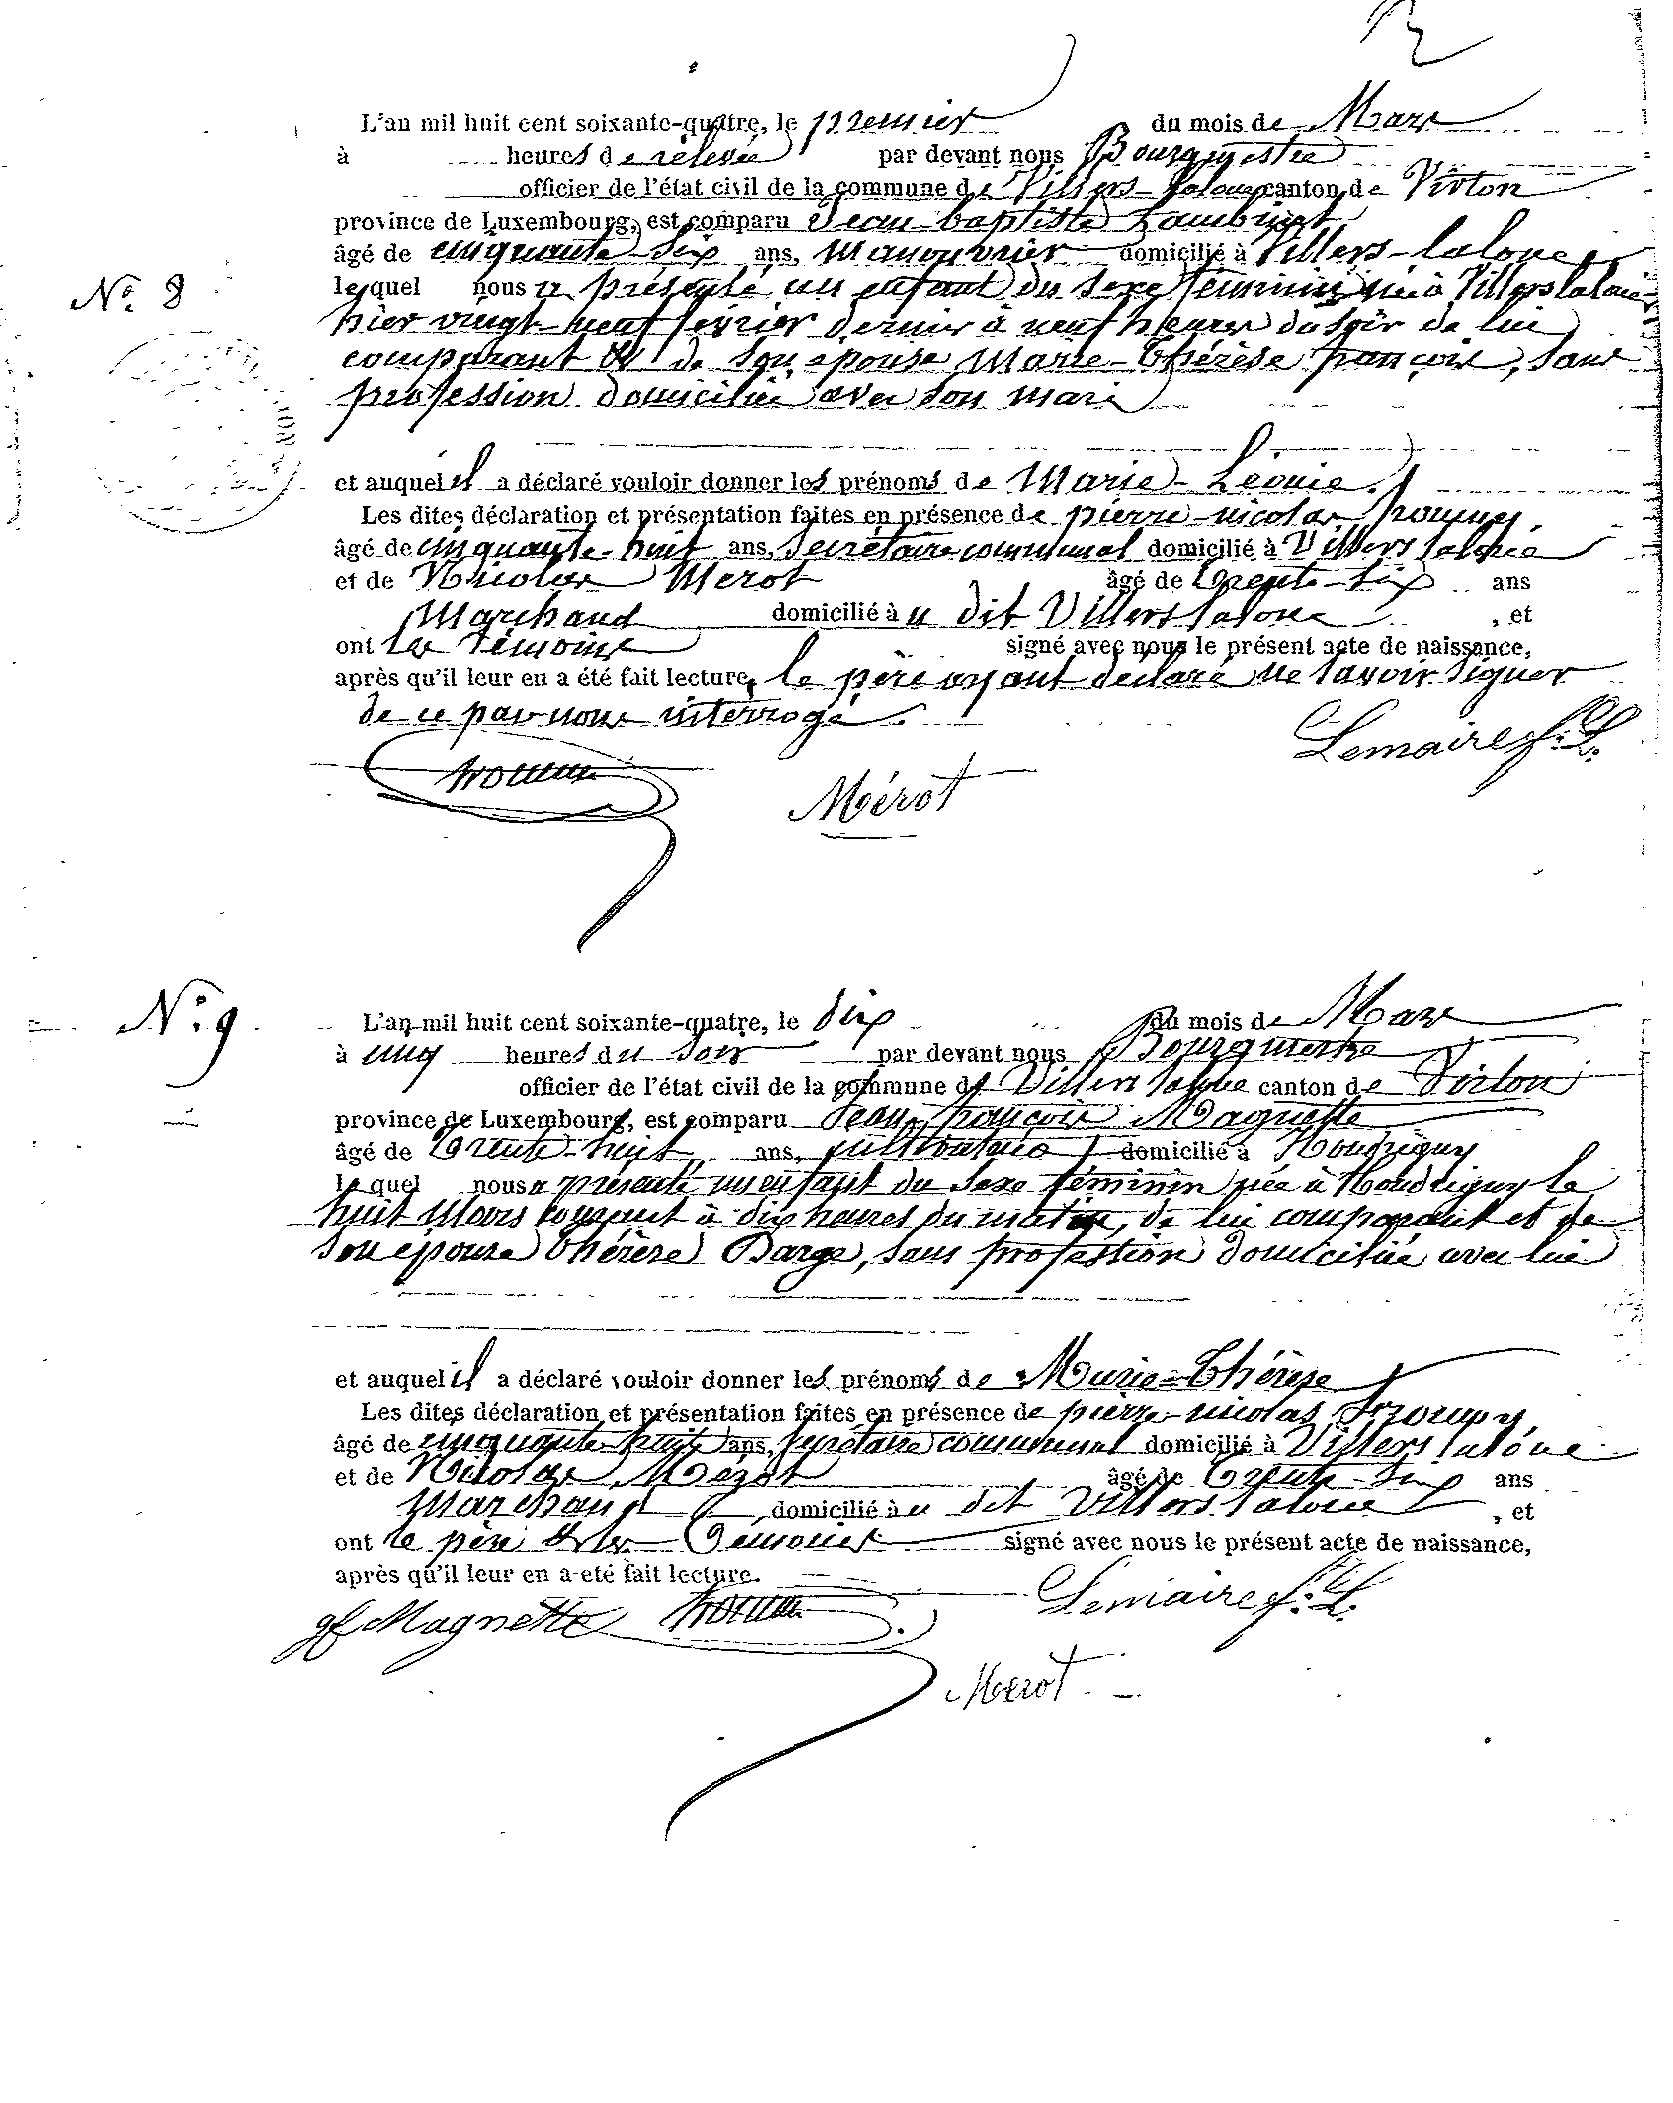 L'an mil huit cent soixante-quatre, le premier du mois de Mars
à heures de relevée par devant nous Bourgmestre
officier de l'état civil de la commune de Villers-laloue canton de Virton
province de Luxembourg, est comparu Jean-baptiste Lambinet
âgé de cinquante-six ans, manouvrier domicilié à Villers-laloue
N° 8
lequel nous a présenté un enfant du sexe féminin née à Villers laloue
hier vingt-neuf février dernier à neuf heures du soir de lui
comparant et de son épouse Marie-Thérèse françois, sans
profession domiciliée avec son mari
et auquel il a déclaré vouloir donner les prénoms de Marie-Léonie.
Les dites déclaration et présentation faites en présence de pierre-nicolas
âgé de cinquante-huit ans, secrétaire communal domicilié à Villers laloue
et de Nicolas Merot âgé de trente-six ans
Marchand domicilié à u dit Villers laloue , et
ont les témoins signé avec nous le présent acte de naissance,
après qu'il leur en a été fait lecture, le père ayant déclaré ne savoir signer
de ce par nous interrogé.
Lemaire f.L.
Mérot
N° 9
L'an mil huit cent soixante-quatre, le dix du mois de Mars
à cinq heures du soir par devant nous Bourgmestre
officier de l'état civil de la commune de Villers laloue canton de Virton
province de Luxembourg, est comparu Jean françois Magnette
âgé de trente-huit ans, cultivateur domicilié à Houdrigny
lequel nous a présenté un enfant du sexe féminin née à Houdrigny le
huit Mars courant à dix heures du matin, de lui comparant et de
son épouse Thérèse Barge, sans profession domiciliée avec lui
et auquel il a déclaré vouloir donner les prénoms de Marie-Thérèse
Les dites déclaration et présentation faites en présence de pierre-nicolas
âgé de cinquante-huit ans, secrétaire communal domicilié à Villers laloue
et de Nicolas Mérot âgé de trente-six ans
Marchand domicilié à u dit Villers laloue , et
ont le père et les témoins signé avec nous le présent acte de naissance,
après qu'il leur en a été fait lecture.
Magnette Lemaire f.L.
Merot